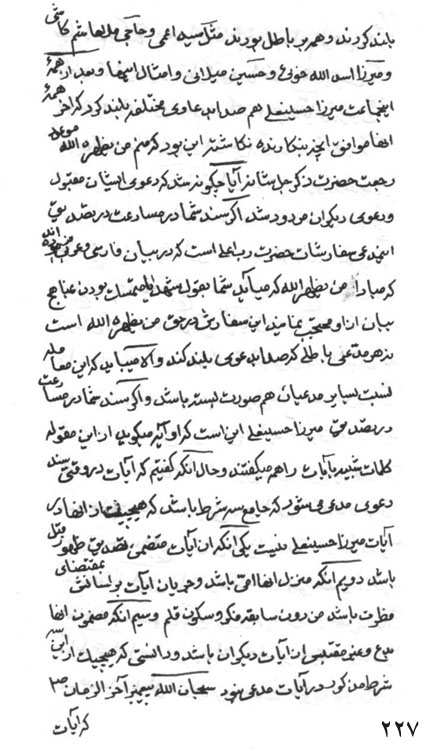 بلند کردند و همه بر باطل بودند مثل سید اعمی و حاجی ملا هاشم کاشی
و میرزا اسد الله خوئی و حسین میلانی و امثال اینها و بعد از همهٔ
اینجماعت میرزا حسینعلی هم صدا بدعاوی مختلفه بلند کرد که آخر همهٔ
آنها موافق آنچه بنگارنده نگاشته این بود که منم من یظهره الله موعود
رجعت حضرت ذکر جل شانه آیا چگونه شد که دعوی ایشان مقبول
و دعوی دیگران مردود شد اگر سند شما در مسارعت در تصدیق
این مدعی سفارشات حضرت رب اعلی است که در بیان فارسی و عربی فرموده‌اند
که مبادا من یظهره الله که میآید شما بقول متمسک بودن بمناهج
بیان از او محتجب بمانید این سفارش در حق من یظهره الله است
نه هر مدعی باطلی که صدا بدعوی بلند کند و الا میباید که این معامله
نسبت بسایر مدعیان هم صورت بسته باشد و اگر سند شما در مسارعت
در تصدیق میرزا حسینعلی این است که او آیه میگوید از این مقوله
کلمات شبیه بآیات را همه میگفتند و حال آنکه گفتیم که آیات در وقتی سند
دعوی مدعی میشود که جامع سه شرط باشد که هیچیک از آنها در
آیات میرزا حسینعلی نیست یکی آنکه آن آیات متضمن تصدیق ظهور قبل
باشد دویم آنکه منزل آنها امی باشد و جریان آیات بر لسانش بمقتضای
فطرت باشد من دون سابقه فکر و سکون قلم و سیم آنکه مضمون آنها
بدیع و غیر مقتبس از آیات دیگران باشد و دانستی که هیچیک از این سه
شرط مذکور در آیات مدعی نبود سبحان الله پیغمبر آخر الزمان ص
که آیات
۲۲۷